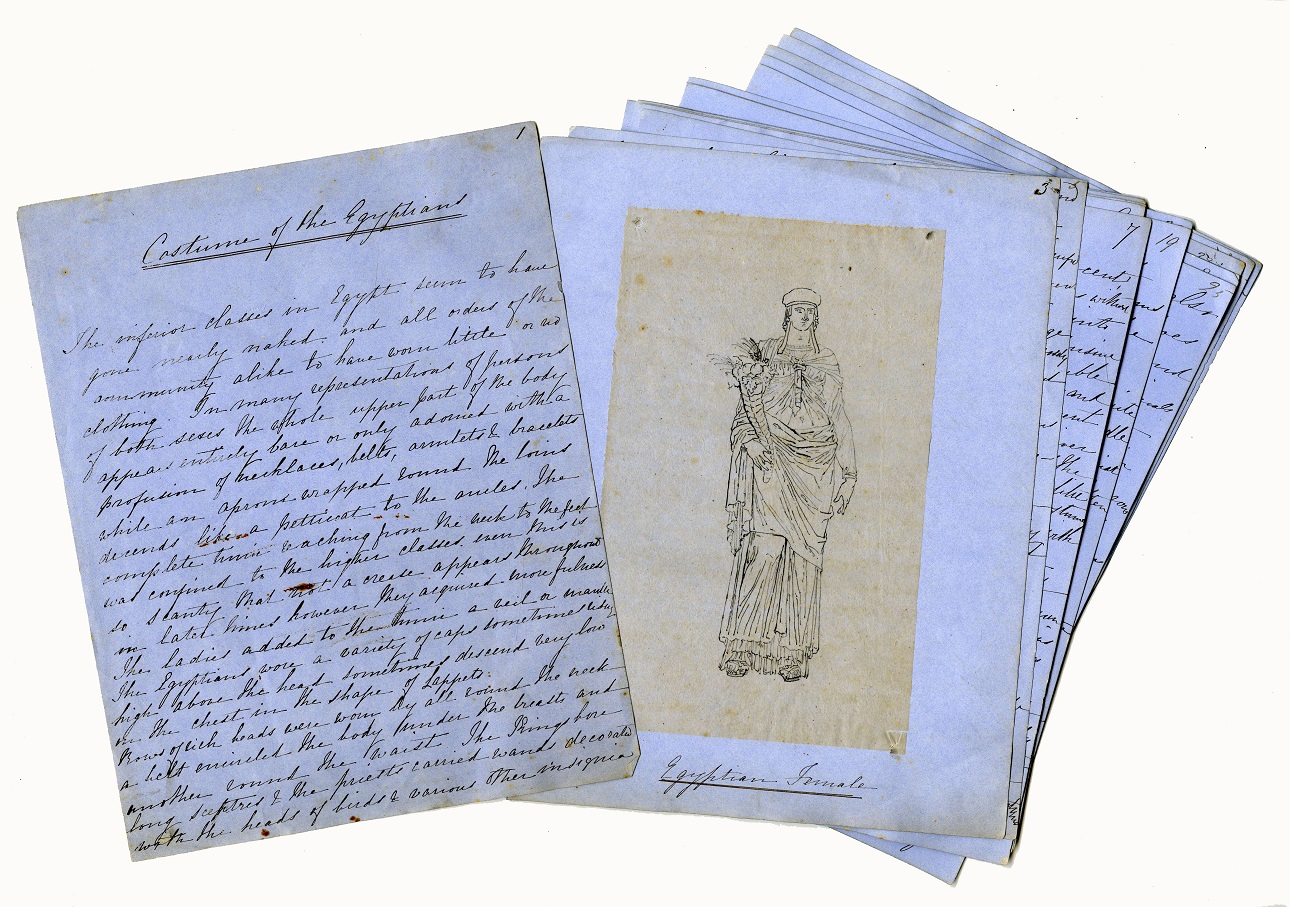 1
Costume of the Egyptians
The inferior classes in Egypt seem to have
gone nearly naked. and all orders of the
community alike to have worn little or no
clothing. In many representations of persons
of both sexes the whole upper part of the body
appears entirely bare or only adorned with a
profusion of necklaces, belts, armlets & bracelets
while an aprons wrapped round the loins
decends like a petticoat to the ancles. The
complete tunic reaching from the neck to the feet
was confined to the higher classes. even this is
so scanty that not a crease appears throughout
in later times however they acquired more fulness
The ladies added to the tunic a veil or mantle
The Egyptians wore a variety of caps sometimes rising
high above the head sometimes descend very low
on the chest in the shape of Lappets.
Rows of rich beads were worn by all round the neck
a belt encircled the body under the breasts and
another round the waist. The Kings bore
long sceptres & the priests carried wands decorated
with the heads of birds & various other insignia
3
Egyptian Female
7
19